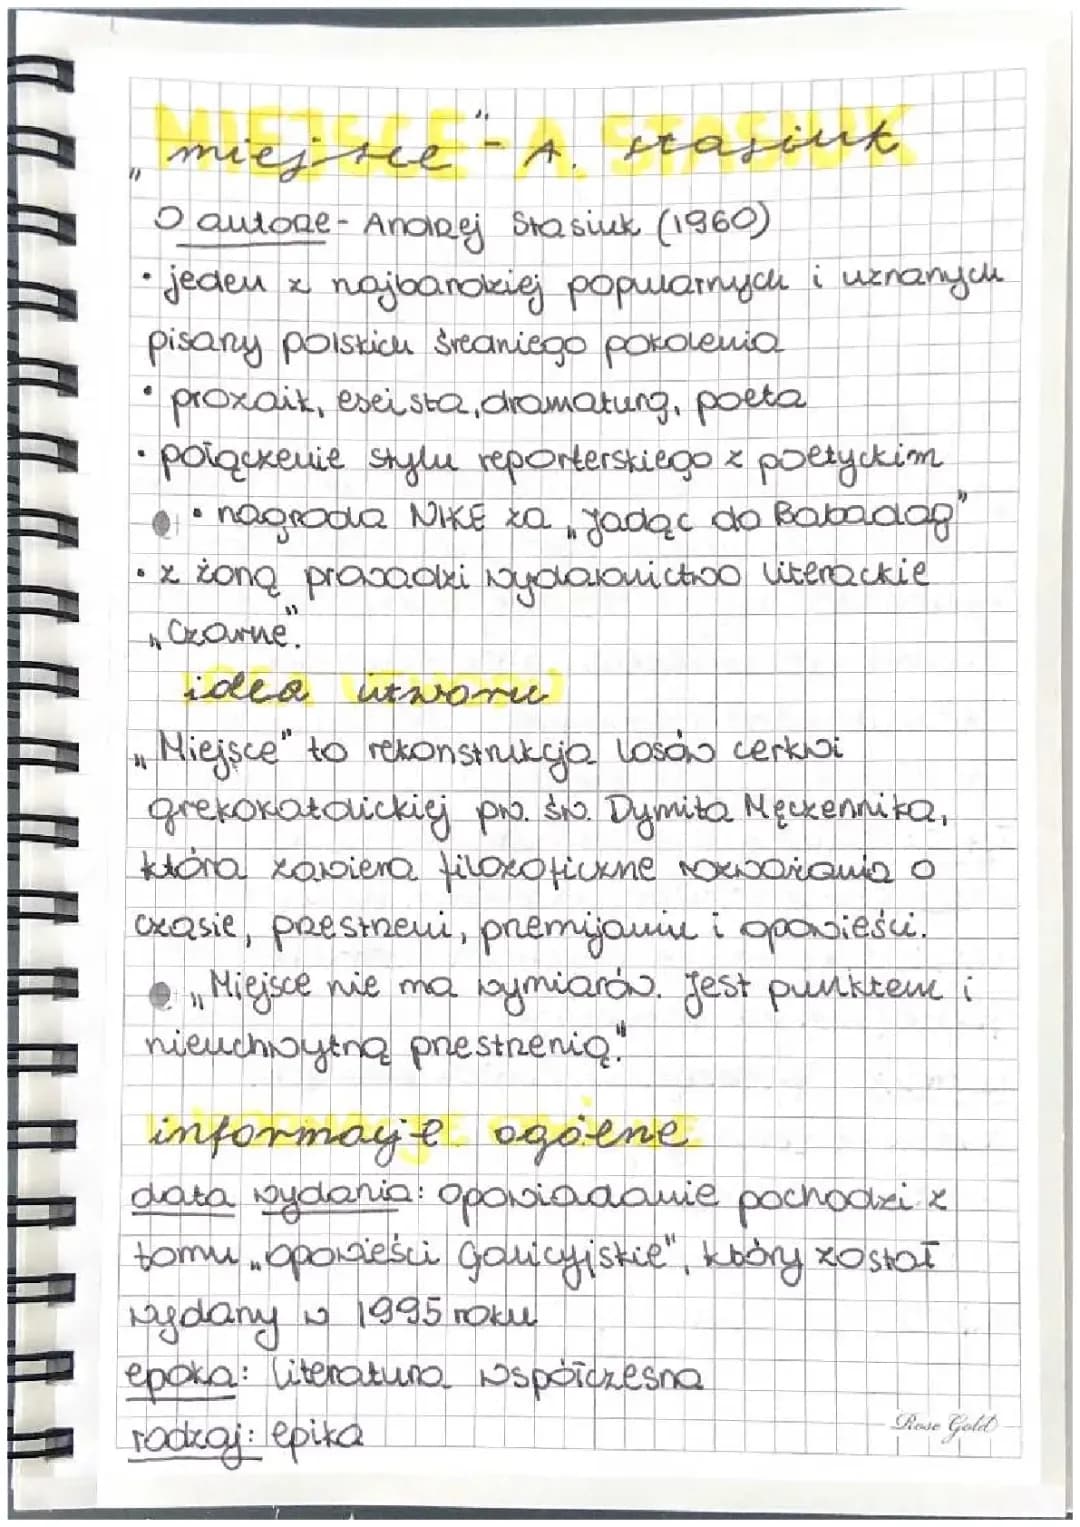 MIEJSCE - A. STASIUK
„miejsce" - A. Stasiuk
O autorze - Andrzej Stasiuk (1960)
• jeden z najbardziej popularnych i uznanych
pisarzy polskich średniego pokolenia
• prozaik, eseista, dramaturg, poeta
• połączenie stylu reporterskiego z poetyckim
• nagroda NIKE za „Jadąc do Babadag"
• z żoną prowadzi wydawnictwo literackie
„Czarne".
idea utworu
„Miejsce" to rekonstrukcja losów cerkwi
grekokatolickiej pw. św. Dymitra Męczennika,
która zawiera filozoficzne rozważania o
czasie, przestrzeni, przemijaniu i opowieści.
„Miejsce nie ma wymiarów. Jest punktem i
nieuchwytną przestrzenią."
informacje ogólne
data wydania: opowiadanie pochodzi z
tomu „opowieści galicyjskie", który został
wydany w 1995 roku
epoka: literatura współczesna
rodzaj: epika
Rose Gold